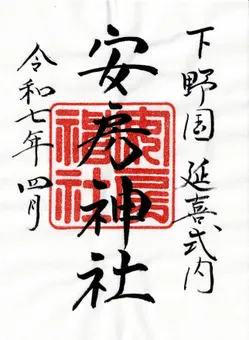 下野国 延喜式内
安房神社
安房神社
令和七年 四月